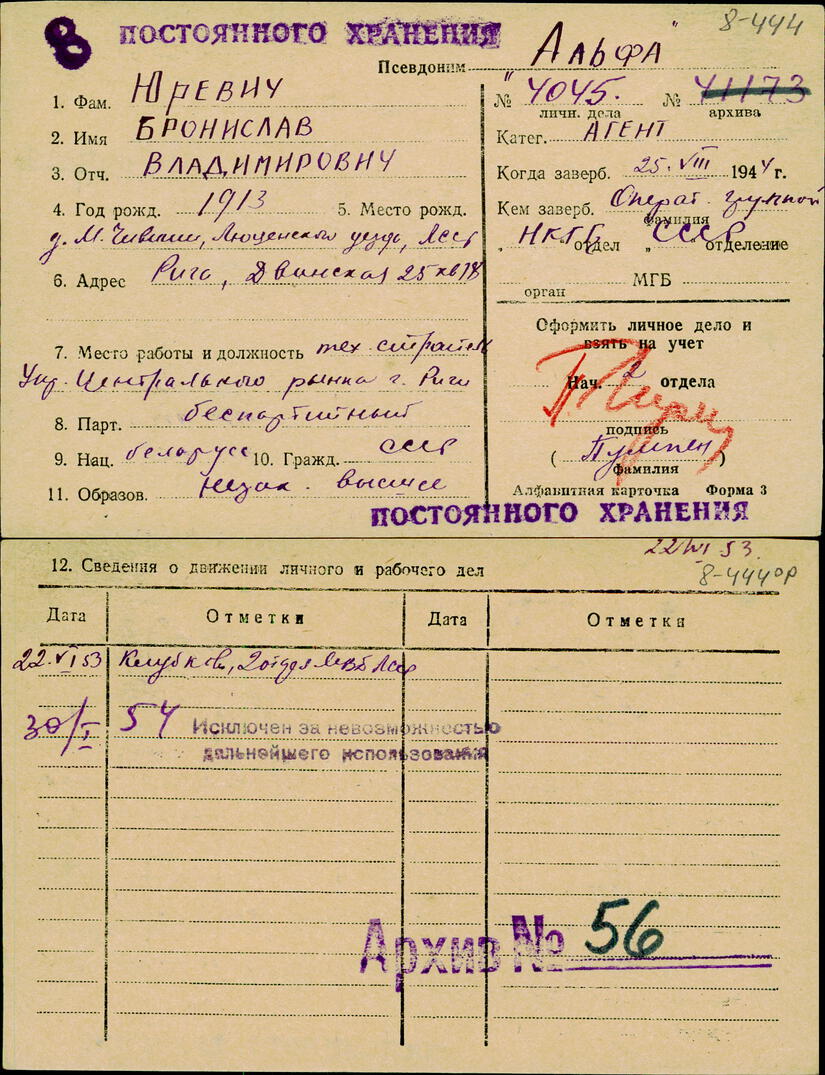 8 ПОСТОЯННОГО ХРАНЕНИЯ
8-444
Псевдоним "Альфа"
1. Фам. Юревич
2. Имя Бронислав
3. Отч. Владимирович
4. Год рожд. 1913 5. Место рожд.
д. М. Люценского уезда, Лсср
6. Адрес Рига, Двинская 25 кв 18
7. Место работы и должность тех. строитель
Упр. Центрального рынка г. Риги
8. Парт. беспартийный
9. Нац. беларусс 10. Гражд. ссср
11. Образов. незак. высшее
№ 4045. № 41173
личн. дела архива
Катег. Агент
Когда заверб. 25.VIII 1944 г.
Кем заверб. Операт. группой
фамилия
" НКГБ отдел " СССР отделение
МГБ
орган
Оформить личное дело и
взять на учет
Нач. 2 отдела
подпись
( )
фамилия
Алфавитная карточка Форма 3
ПОСТОЯННОГО ХРАНЕНИЯ
22/VI 53.
8-444 ор
12. Сведения о движении личного и рабочего дел
Дата Отметки Дата Отметки
22.VI 53 2 отдел Лсср
30/I 54 Исключен за невозможностью
дальнейшего использования
Архив № 56